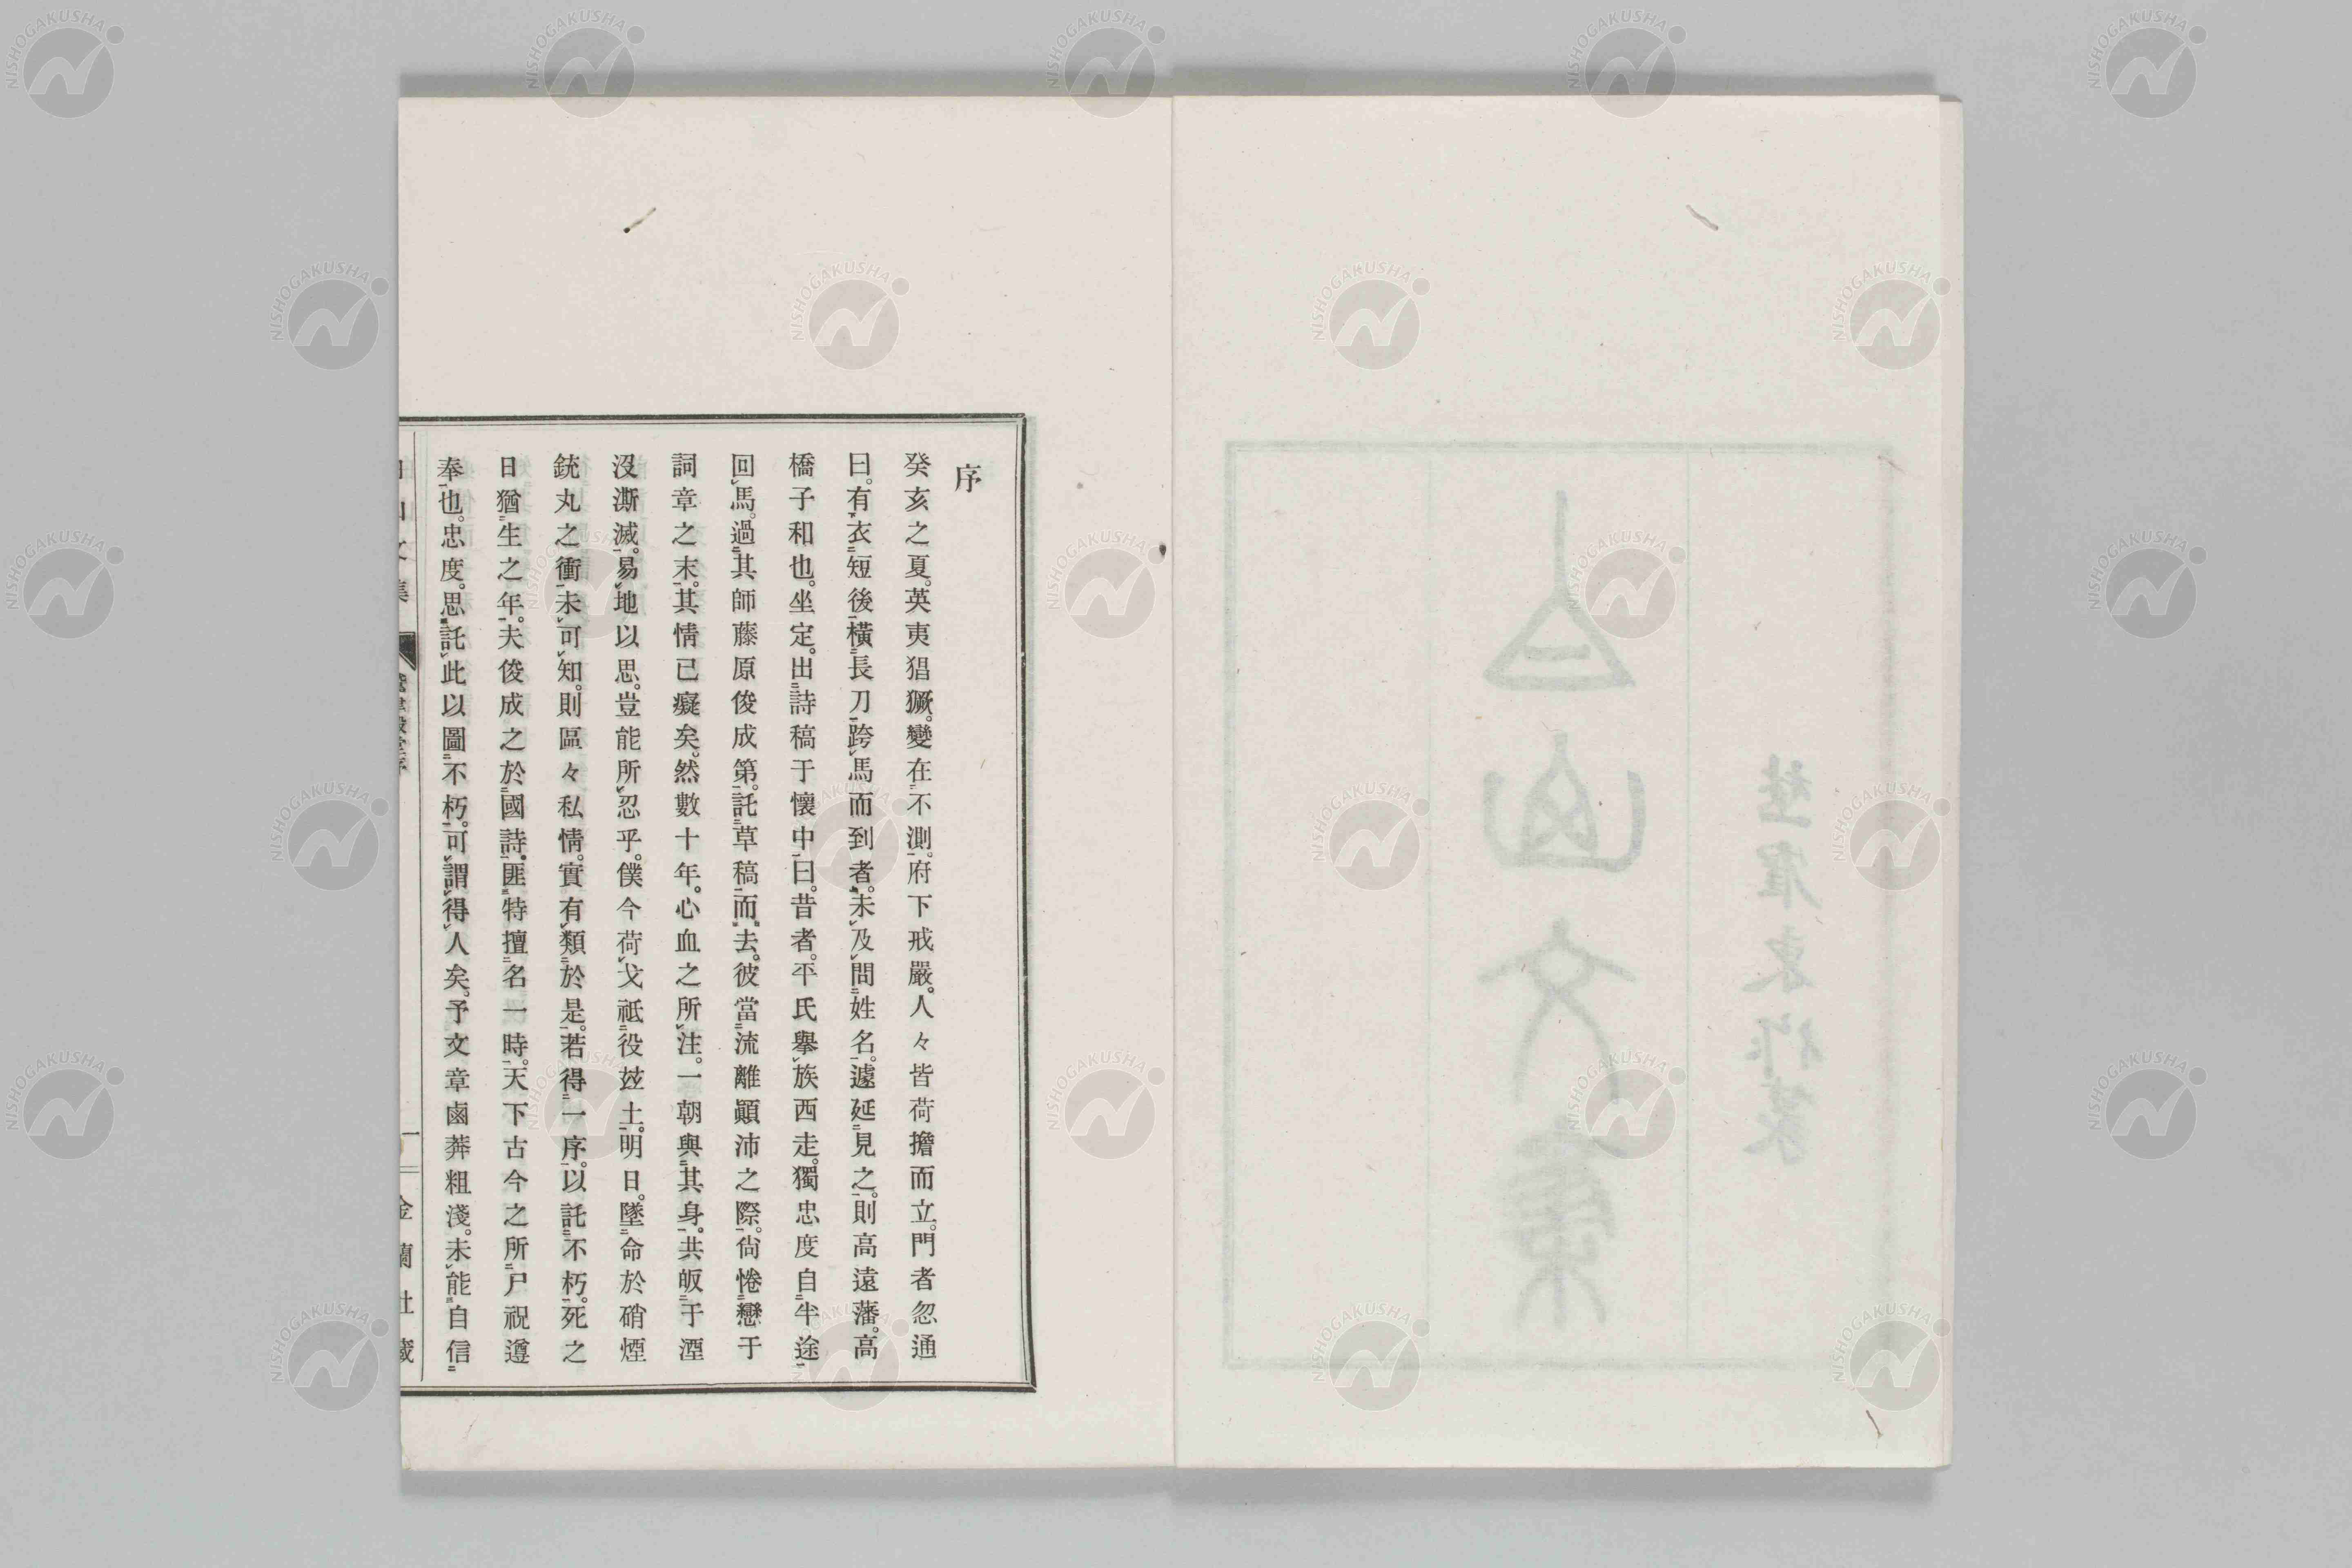 序
癸亥之夏。英夷猖獗。變在不測。府下戒嚴。人々皆荷擔而立。門者忽通
曰。有衣短後橫長刀跨馬而到者。未及問姓名。遽延見之。則高遠藩。高
橋子和也。坐定。出詩稿于懷中曰。昔者。平氏擧族西走。獨忠度自半途
回馬。過其師藤原俊成第。託草稿而去。彼當流離顚沛之際。尙惓戀于
詞章之末。其情已癡矣。然數十年。心血之所注。一朝與其身。共皈于湮
沒澌滅。易地以思。豈能所忍乎。僕今荷戈祗役玆土。明日。墜命於硝煙
銃丸之衝未可知。則區々私情。實有類於是。若得一序。以託不朽。死之
日猶生之年。夫俊成之於國詩。匪特擅名一時。天下古今之所尸祝遵
奉也。忠度。思託此以圖不朽。可謂得人矣。予文章鹵莽粗淺。未能自信
金蘭社藏
NISHOGAKUSHA